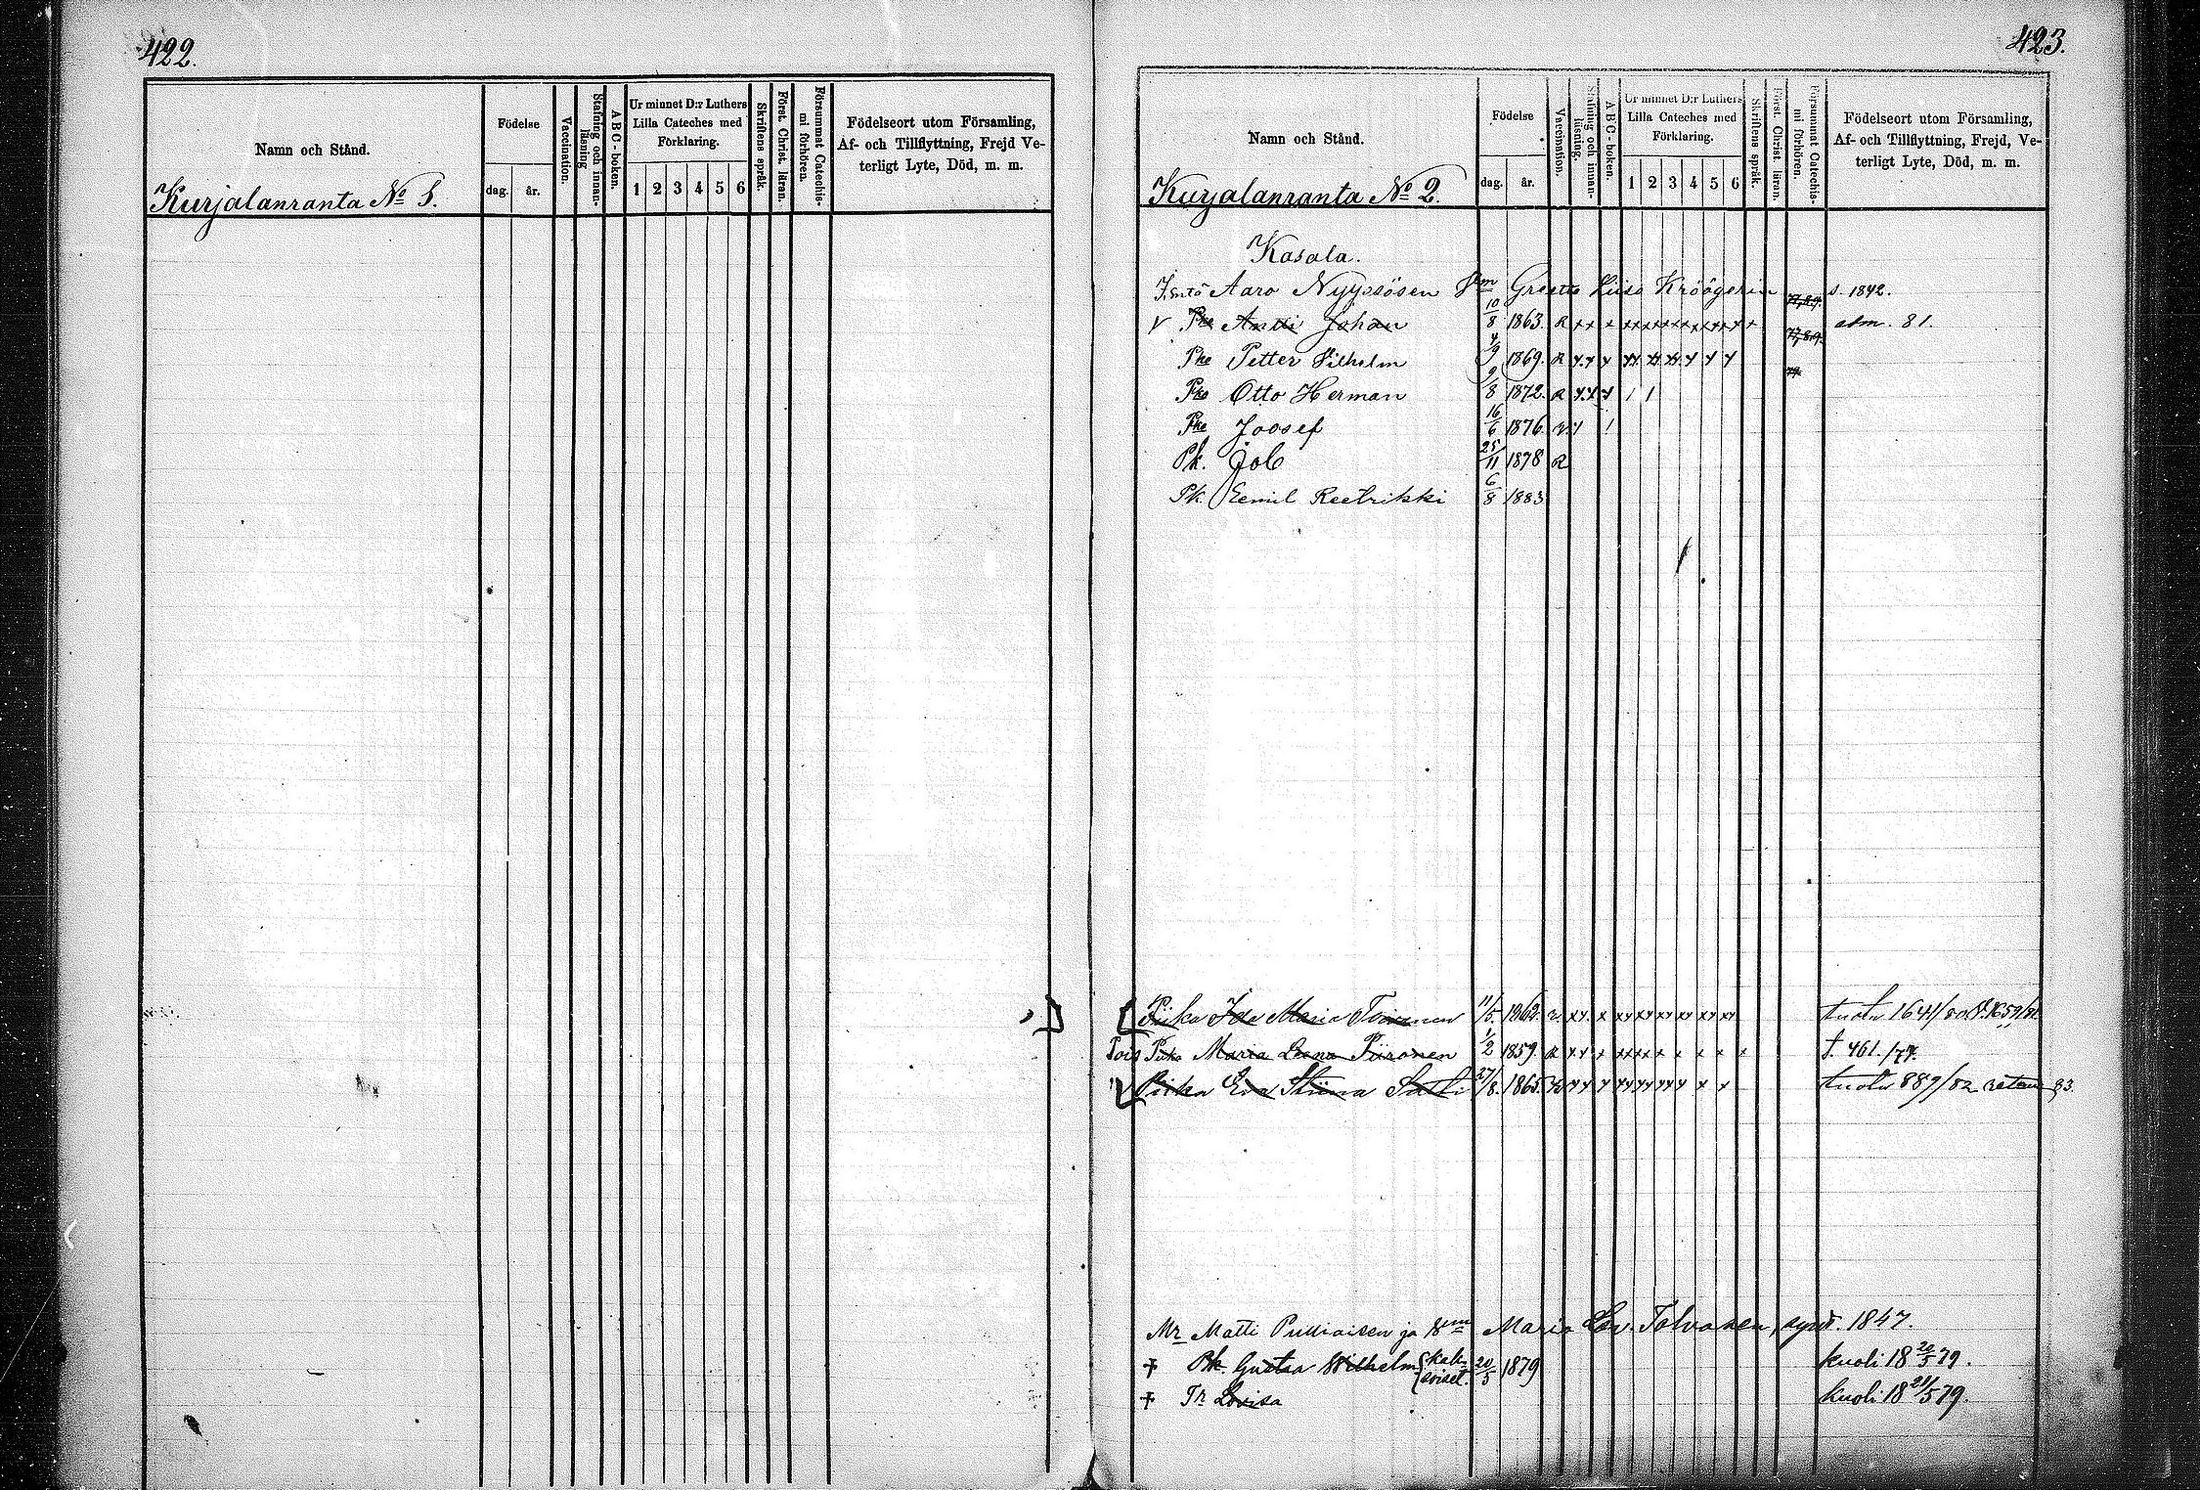 422.
Namn och Stånd.
Födelse
dag.
år.
Vaccination.
Stafning och innan-
läsning
ABC-boken.
Ur minnet D:r Luthers
Lilla Cateches med
Förklaring.
1 2 3 4 5 6
Skriftens språk.
Först. Christ. läran.
Försummat Catechis-
mi förhören.
Födelseort utom Församling,
Af- och Tillflyttning, Frejd Ve-
terligt Lyte, Död, m. m.
Kurjalanranta No 1.
423.
Namn och Stånd.
Födelse
dag.
år.
Vaccination.
Stafning och innan-
läsning.
ABC-boken.
Ur minnet D:r Luthers
Lilla Cateches med
Förklaring.
1 2 3 4 5 6
Skriftens språk.
Först. Christ. läran.
Försummat Catechis-
mi förhören.
Födelseort utom Församling,
Af- och Tillflyttning, Frejd, Ve-
terligt Lyte, Död, m. m.
Kurjalanranta No 2.
Kasala.
Aaro Nyyssösen Greetta Liisa Kröögerin s. 1842.
Pka Antti Johan 10/8 1863. R x x x x x x x x x x x x x adm. 81.
Pka Petter Vilhelm 4/9 1869. R
Pka Otto Herman 9/8 1872. R
Pka Joosef 16/6 1876
Pk. Job 25/11 1878 R
Pk. Eemil Reetrikki 6/8 1883
Piika Ida Maria 11/5. 1862.
Piika Maria Leena Piironen 1/2 1859. R † 461./77.
Piika Eva Stiina 27/8. 1865. 889/82
Mr Matti Pulliaisen ja Maria Ev. Tolvanen, synt. 1847.
† Pk. Gustaa Wilhelm kak- 20/5 1879 kuoli 18 20/5 79.
soiset.
† Tr Lovisa kuoli 18 21/5 79.